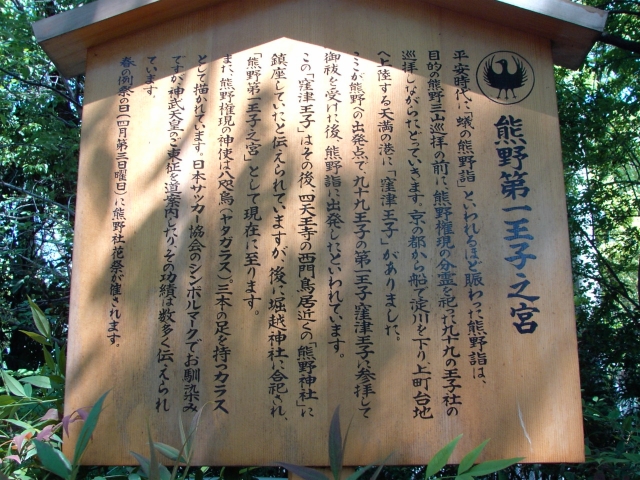 熊野第一王子之宮
平安時代に「蟻の熊野詣」といわれるほど賑わった熊野詣は、
目的の熊野三山巡拝の前に、熊野権現の分霊を祀った九十九の王子社の
巡拝しながらたどっていきます。京の都から船で淀川を下り、上町台地
へ上陸する天満の港に、「窪津王子」がありました。
ここが熊野への出発点で、九十九王子の第一王子・窪津王子に参拝して
御祓を受けた後、熊野詣に出発したといわれています。
この「窪津王子」はその後、四天王寺の西門、鳥居近くの「熊野神社」に
鎮座していたと伝えられていますが、後に堀越神社に合祀され、
「熊野第一王子之宮」として現在に至ります。
また、熊野権現の神使は八咫烏(ヤタガラス)。三本の足を持つカラス
として描かれています。日本サッカー協会のシンボルマークでお馴染み
ですが、神武天皇のご東征を道案内したり、その功績は数多く伝えられ
ています。
春の例祭の日(四月第三日曜日)に熊野社花祭が催されます。